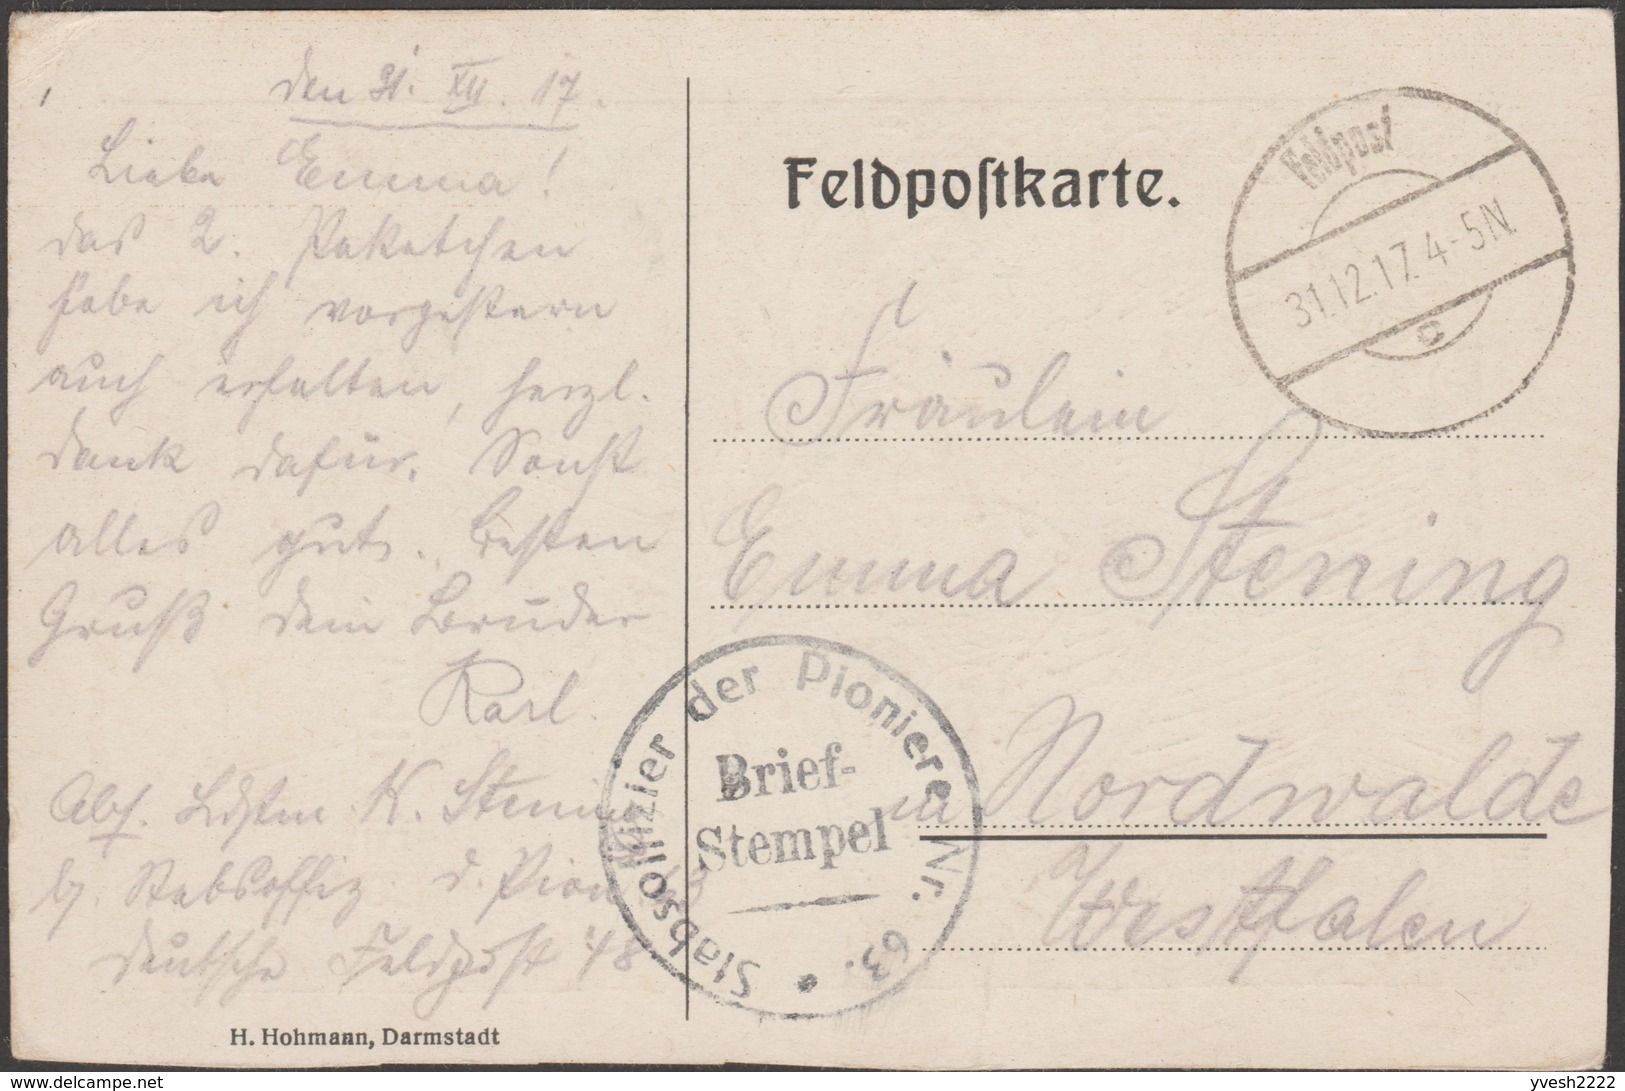 den 31. XII. 17.
Liebe Emma!
das 2. Paketchen
habe ich vorgestern
auch erhalten, herzl.
Dank dafür. Sonst
alles gut. Besten
Gruß dein Bruder
Karl.
Abs. Ldstm K. Stening
b. Stabsoffiz. d. Pion 63
deutsche Feldpost 48
H. Hohmann, Darmstadt
Feldpostkarte.
Feldpost
31.12.17. 4-5N.
c
Fräulein
Emma Stening
in Nordwalde
Westfalen
Stabsoffizier der Pioniere Nr. 63.
Brief-
Stempel
www.delcampe.net
yvesh2222